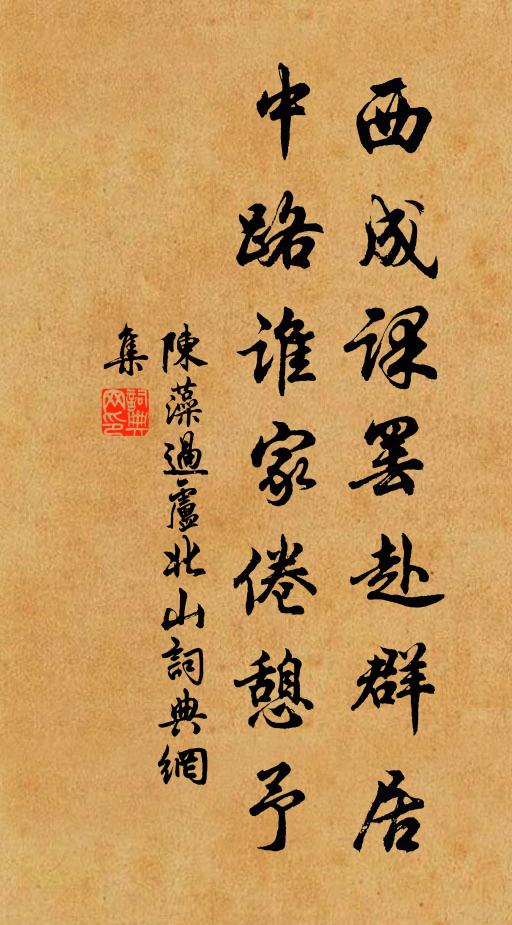 西成課罷赴群居
中路誰家倦憩予
陳藻過廬北山詞典網
集
詞典網印